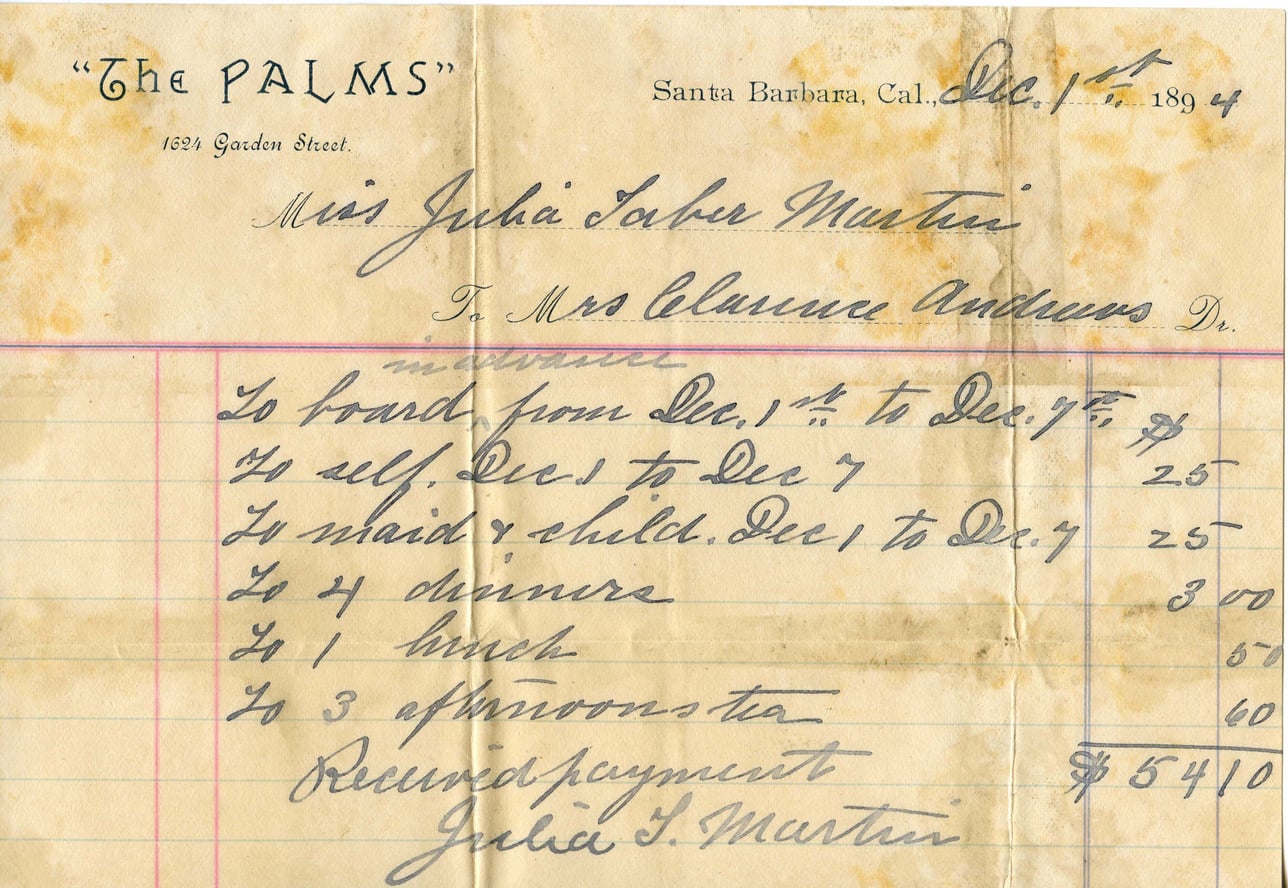 "The PALMS"
Santa Barbara, Cal., Dec. 1st 1894
1624 Garden Street.
Miss Julia Taber Martin
To Mrs Clarence Andrews Dr.
in advance
To board, from Dec. 1st to Dec. 7th $
To self. Dec. 1 to Dec 7 25
To maid & child. Dec 1 to Dec. 7 25
To 4 dinners 3 00
To 1 lunch 50
To 3 afternoons tea 60
Received payment $ 54 10
Julia T. Martin